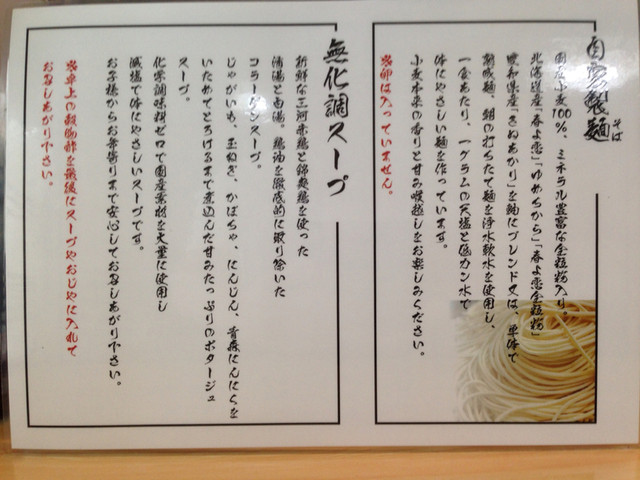 自家製麺
そば
国産小麦100%、ミネラル豊富な全粒粉入り。
北海道産「春よ恋」「ゆめちから」「春よ恋全粒粉」
愛知県産「きぬあかり」を軸にブレンド又は、単体で
朝成麺、朝の打ちたて麺を浄水軟水を使用し、
一食あたり、一グラムの天塩と低カン水で
体にやさしい麺を作っています。
小麦本来の香りと甘み喉越しをお楽しみください。
※卵は入っていません。
無化調スープ
新鮮な三河赤鶏と錦爽鶏を使った
清湯と白湯。鶏油を徹底的に取り除いた
コラーゲンスープ。
じゃがいも、玉ねぎ、かぼちゃ、にんじん、青森にんにくを
いためてとろけるまで煮込んだ甘みたっぷりのポタージュ
スープ。
化学調味料ゼロで国産素材を大量に使用し
減塩で体にやさしいスープです。
お子様からお年寄りまで安心してお召しあがり下さい。
※卓上の穀物酢を最後にスープやおじやに入れて
お召しあがり下さい。